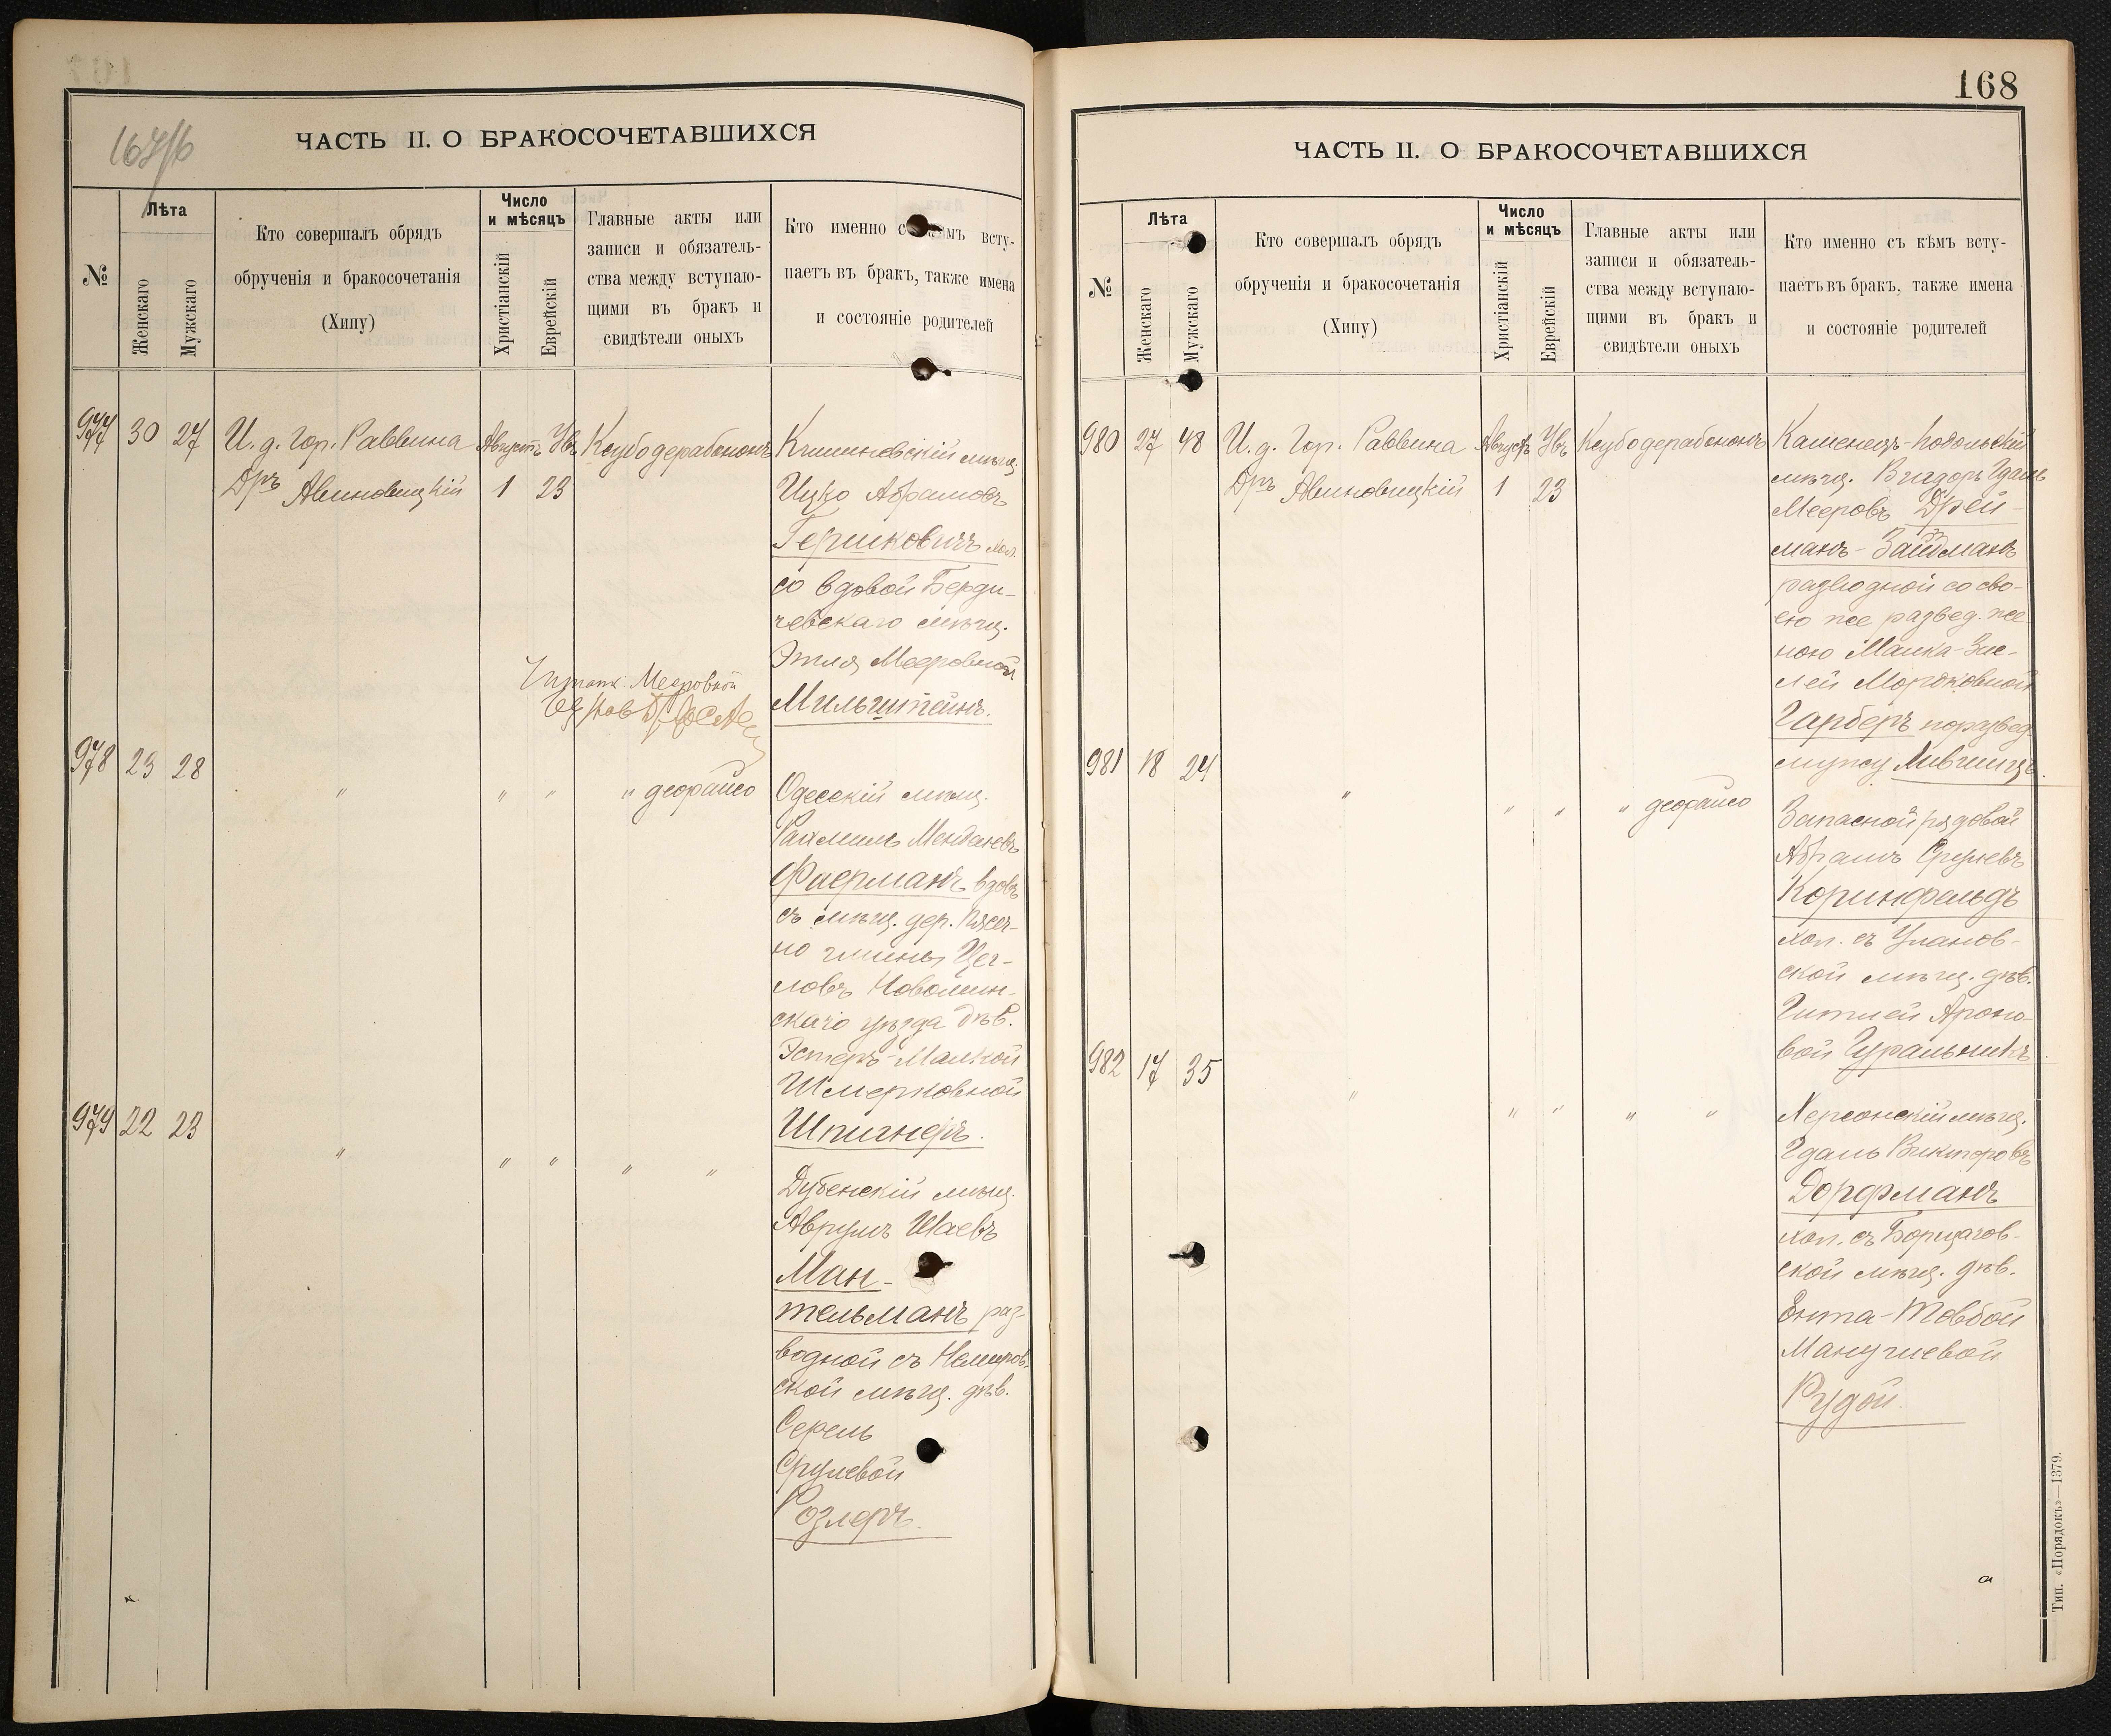 167/б
ЧАСТЬ II. О БРАКОСОЧЕТАВШИХСЯ
№
Лѣта
Женскаго
Мужскаго
Кто совершалъ обрядъ
обрученія и бракосочетанія
(Хипу)
Число
и мѣсяцъ
Христіанскій
Еврейскій
Главные акты или
записи и обязатель-
ства между вступаю-
щими въ бракъ и
свидѣтели оныхъ
Кто именно съ кѣмъ всту-
паетъ въ бракъ, также имена
и состояніе родителей
977 30 27 И. д. Гор. Раввина Августъ Увъ Ксубодерабононъ
Дръ Авиновицкій 1 23
Кишиневскій мѣщ.
Ицко Абрамовъ
Гершковичъ хол.
со вдовой Берди-
чевскаго мѣщ.
Этля Мееровной
Мильштейнъ.
Читать: Мееровной
978 23 28 " " " " деорайсо
Одесскій мѣщ.
Рахмиль Менделевъ
Фаерманъ вдов.
съ мѣщ. дер. Пясеч-
но гмины Цег-
ловъ Новомин-
скаго уѣзда дѣв.
Эстеръ-Малкой
Шмерковной
Шпигнеръ.
979 22 23 " " " " "
Дубенскій мѣщ.
Аврумъ Шаевъ
Ман-
тельманъ раз-
водной съ Немиров-
ской мѣщ. дѣв.
Серель
Срулевой
Розлеръ.
168
ЧАСТЬ II. О БРАКОСОЧЕТАВШИХСЯ
№
Лѣта
Женскаго
Мужскаго
Кто совершалъ обрядъ
обрученія и бракосочетанія
(Хипу)
Число
и мѣсяцъ
Христіанскій
Еврейскій
Главные акты или
записи и обязатель-
ства между вступаю-
щими въ бракъ и
свидѣтели оныхъ
Кто именно съ кѣмъ всту-
паетъ въ бракъ, также имена
и состояніе родителей
980 27 48 И. д. Гор. Раввина Августъ Увъ Ксубодерабононъ
Дръ Авиновицкій 1 23
Каменецъ-Подольскій
мѣщ. Вигдоръ Гдаль
Мееровъ Дрей-
манъ-Зайдманъ
разводной со сво-
ею же развед. же-
ною Малка-Зис-
лей Мордковной
Гарберъ по развед.
мужу Лившицъ.
981 18 24 " " " " деорайсо
Запасной рядовой
Абрамъ Срулевъ
Коринфельдъ
хол. съ Уланов-
ской мѣщ. дѣв.
Гитлей Ароно-
вой Гуральникъ.
982 17 35 " " " " "
Херсонскій мѣщ.
Гдаль Викторовъ
Дорфманъ
хол. съ Борщагов-
ской мѣщ. дѣв.
Ента-Товбой
Манусиевой
Рудой.
Тип. «Порядокъ»—1379.